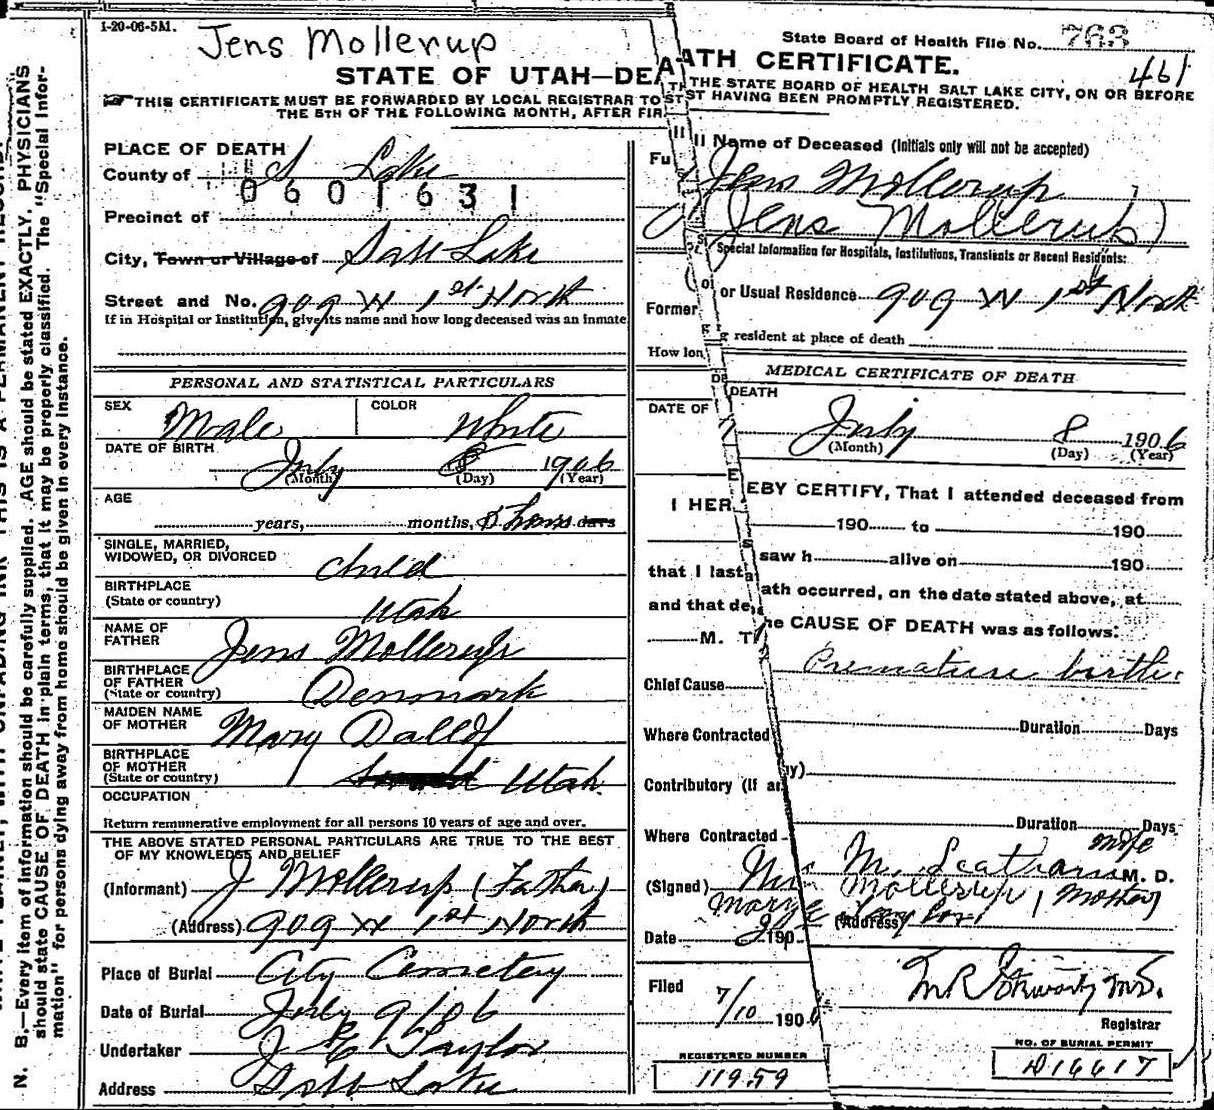 1-20-06-5M.
Jens Mollerup
State Board of Health File No. 763
STATE OF UTAH—DEATH CERTIFICATE.
461
THIS CERTIFICATE MUST BE FORWARDED BY LOCAL REGISTRAR TO THE STATE BOARD OF HEALTH SALT LAKE CITY, ON OR BEFORE
THE 5TH OF THE FOLLOWING MONTH, AFTER FIRST HAVING BEEN PROMPTLY REGISTERED.
PLACE OF DEATH
County of S Lake
0601631
Precinct of
City, Town or Village of Salt Lake
Street and No. 909 W 1st North
If in Hospital or Institution, give its name and how long deceased was an inmate
PERSONAL AND STATISTICAL PARTICULARS
SEX Male
COLOR White
DATE OF BIRTH
July 8 1906
(Month) (Day) (Year)
AGE
years, months, 8 hours days
SINGLE, MARRIED,
WIDOWED, OR DIVORCED child
BIRTHPLACE
(State or country) Utah
NAME OF
FATHER Jens Mollerup
BIRTHPLACE
OF FATHER
(State or country) Denmark
MAIDEN NAME
OF MOTHER Mary Dallof
BIRTHPLACE
OF MOTHER
(State or country) Utah
OCCUPATION
Return remunerative employment for all persons 10 years of age and over.
THE ABOVE STATED PERSONAL PARTICULARS ARE TRUE TO THE BEST
OF MY KNOWLEDGE AND BELIEF
(Informant) J Mollerup (Father)
(Address) 909 W 1st North
Place of Burial City Cemetery
Date of Burial July 9/06
Undertaker J E Taylor
Address Salt Lake
Full Name of Deceased (Initials only will not be accepted)
Jens Mollerup
(Jens Mollerub)
Special Information for Hospitals, Institutions, Transients or Recent Residents:
Former or Usual Residence 909 W 1st North
How long resident at place of death
MEDICAL CERTIFICATE OF DEATH
DATE OF DEATH
July 8 1906
(Month) (Day) (Year)
I HEREBY CERTIFY, That I attended deceased from
190 to 190
that I last saw h alive on 190
and that death occurred, on the date stated above, at
M. The CAUSE OF DEATH was as follows:
Chief Cause Premature birth
Where Contracted Duration Days
Contributory (If any)
Where Contracted Duration Days
(Signed) Mrs M. M. D.
Mollerup (Mother)
Date 190 (Address)
Filed 7/10 1906
Registrar
REGISTERED NUMBER
11959
NO. OF BURIAL PERMIT
D16617
N. B.—Every item of information should be carefully supplied. AGE should be stated EXACTLY. PHYSICIANS
should state CAUSE OF DEATH in plain terms, that it may be properly classified. The "Special Infor-
mation" for persons dying away from home should be given in every instance.